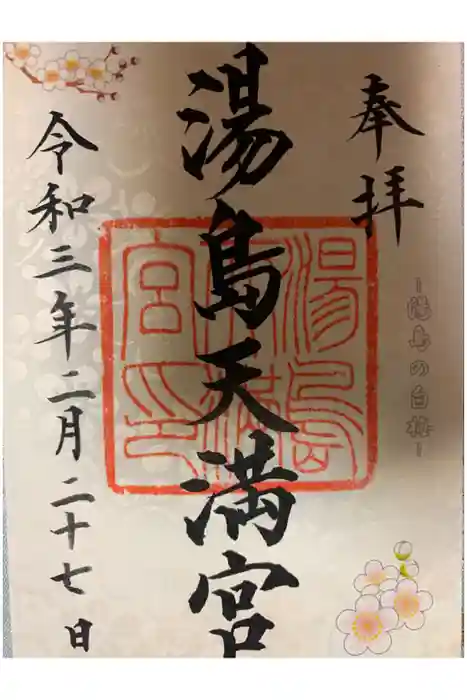 奉拝
－湯島の白梅－
湯島天満宮
湯島天満宮印
令和三年二月二十七日